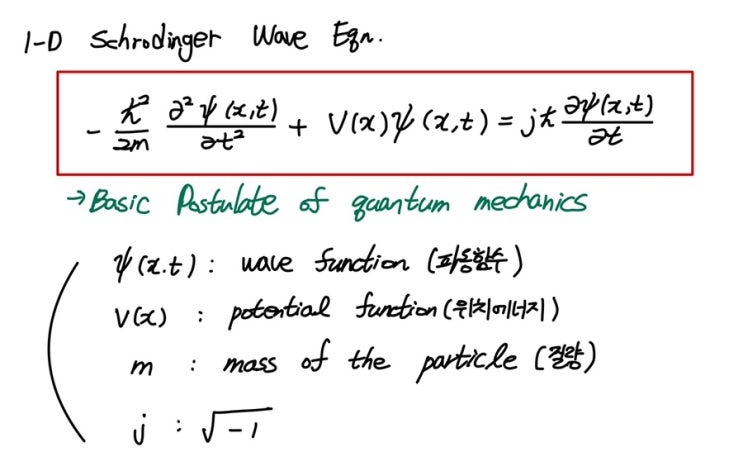 1-D Schrodinger Wave Eqn.
- ℏ²/2m ∂²ψ(x,t)/∂t² + V(x)ψ(x,t) = jℏ ∂ψ(x,t)/∂t
→ Basic Postulate of quantum mechanics
ψ(x.t) : wave function (파동함수)
V(x) : potential function (위치에너지)
m : mass of the particle (질량)
j : √-1